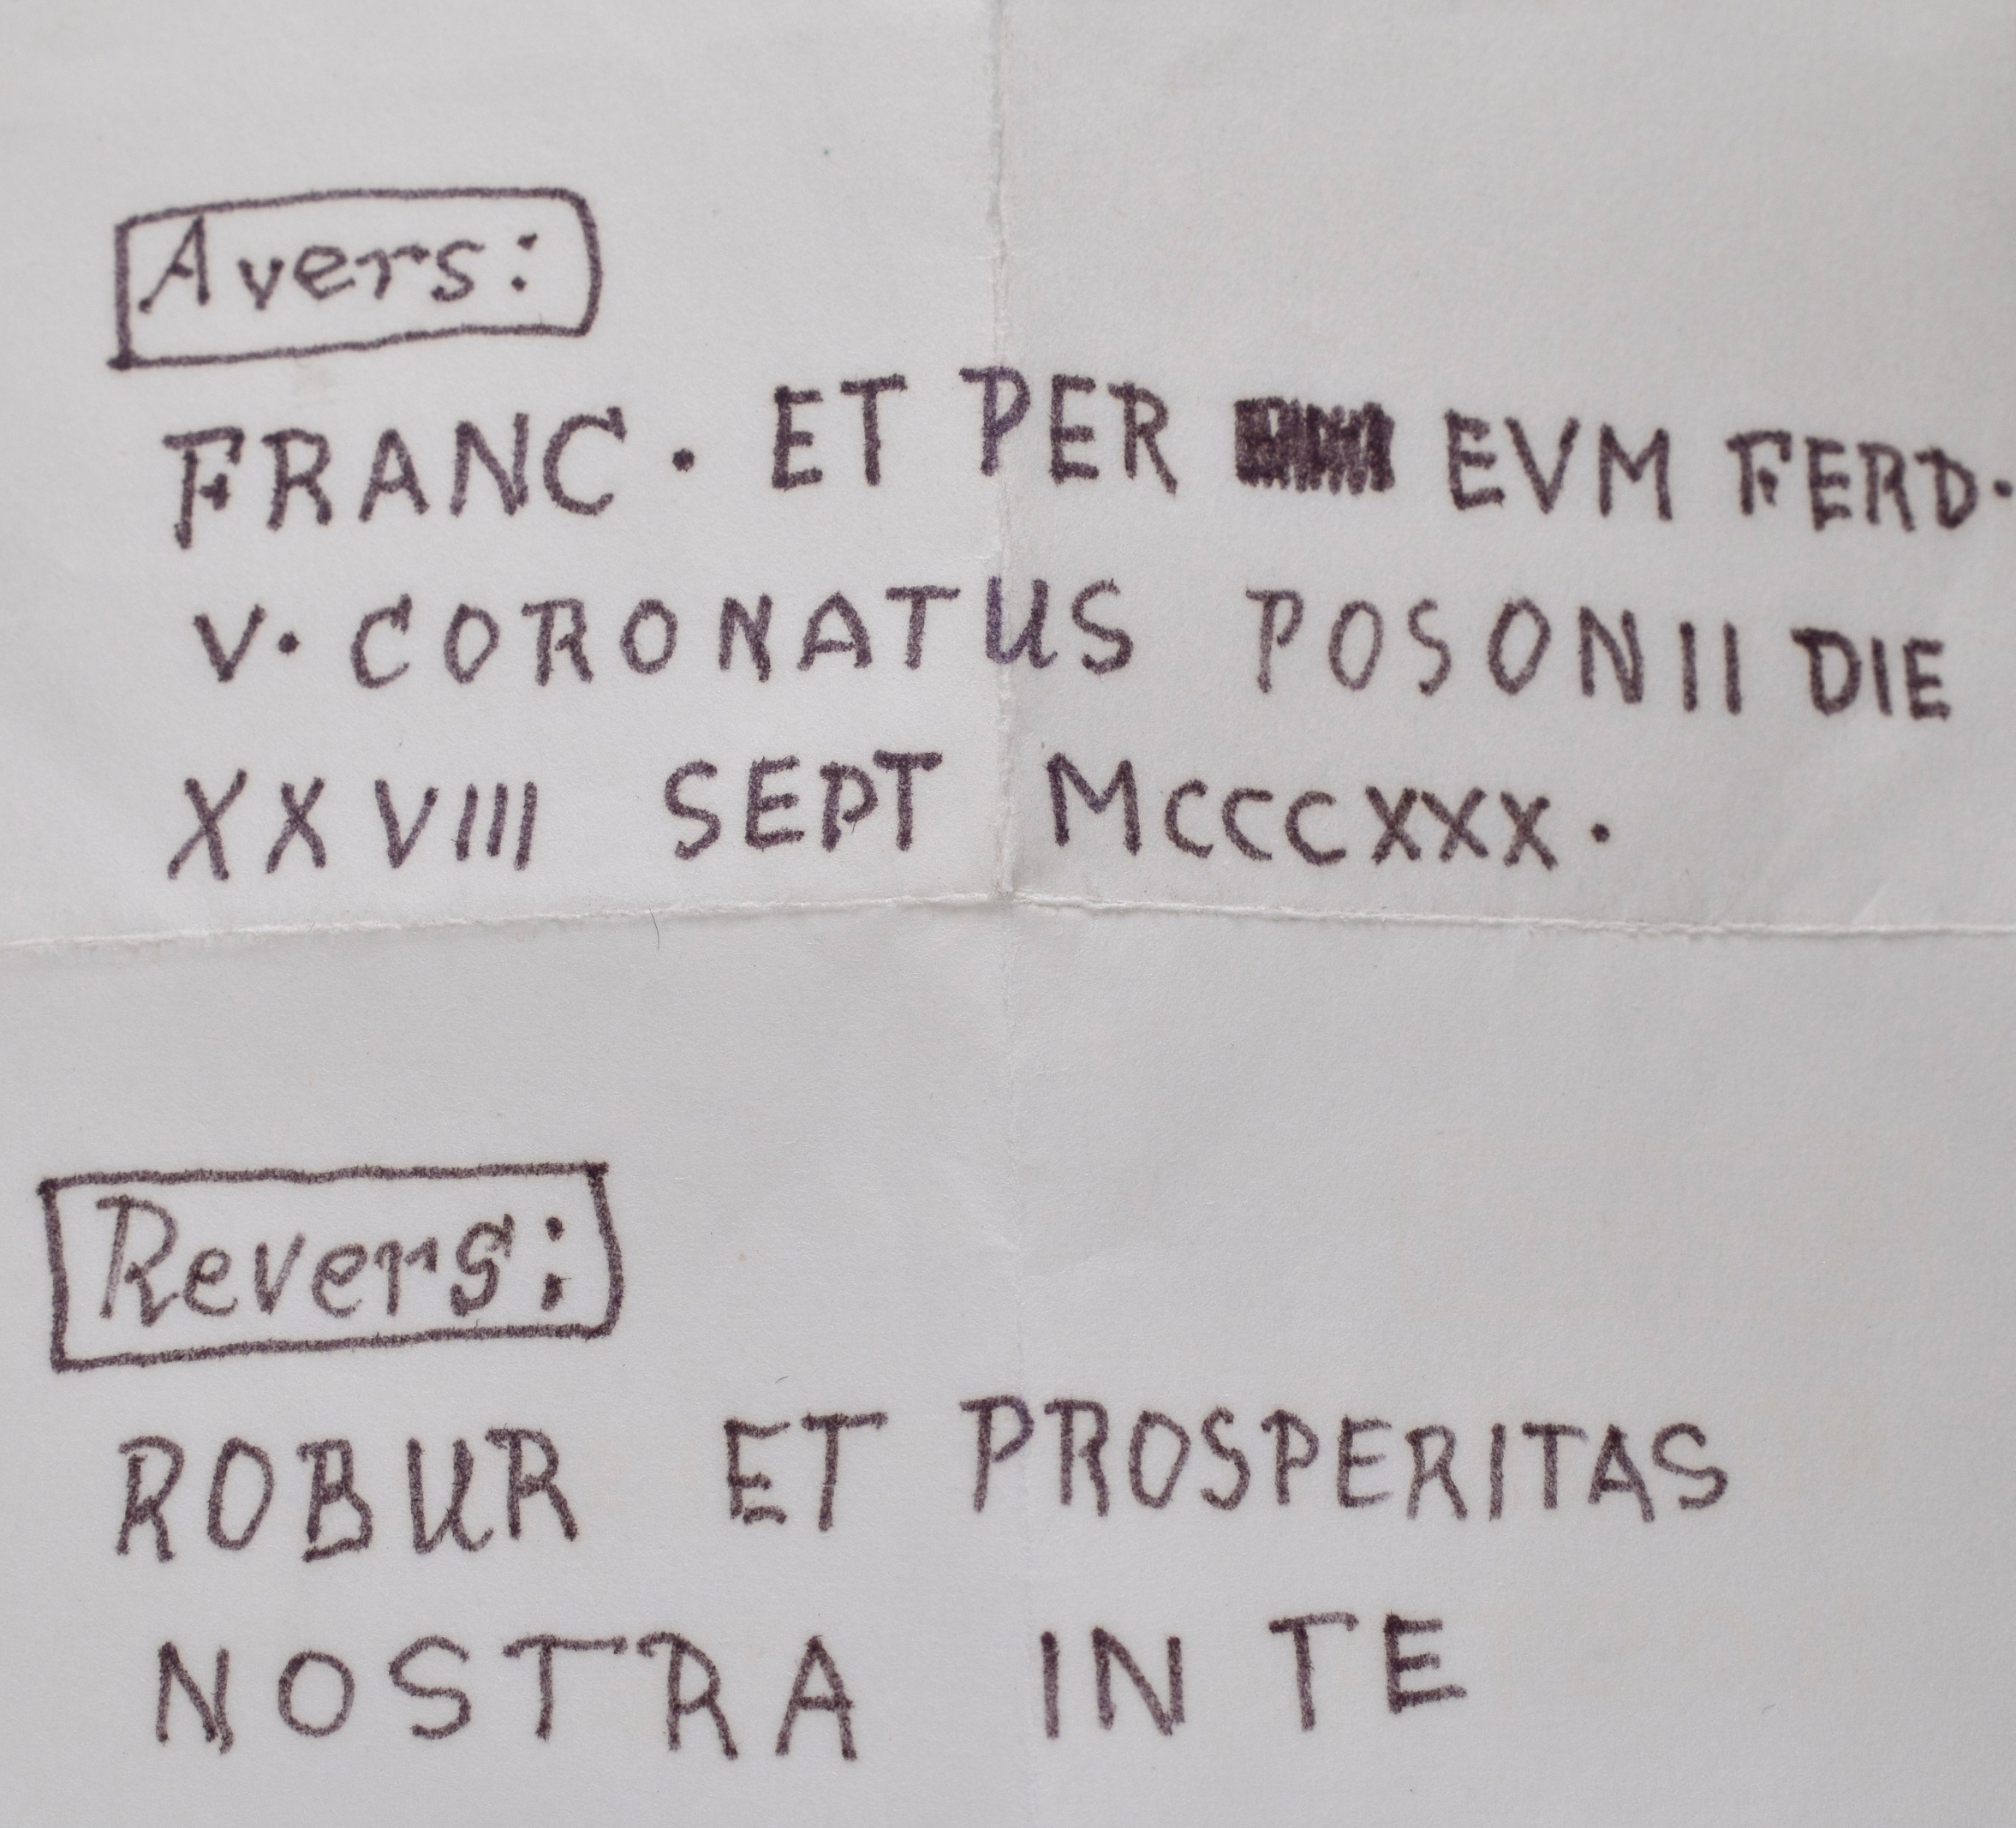 Avers:
FRANC. ET PER EVM FERD.
V. CORONATUS POSONII DIE
XXVIII SEPT MCCCXXX.
Revers:
ROBUR ET PROSPERITAS
NOSTRA IN TE